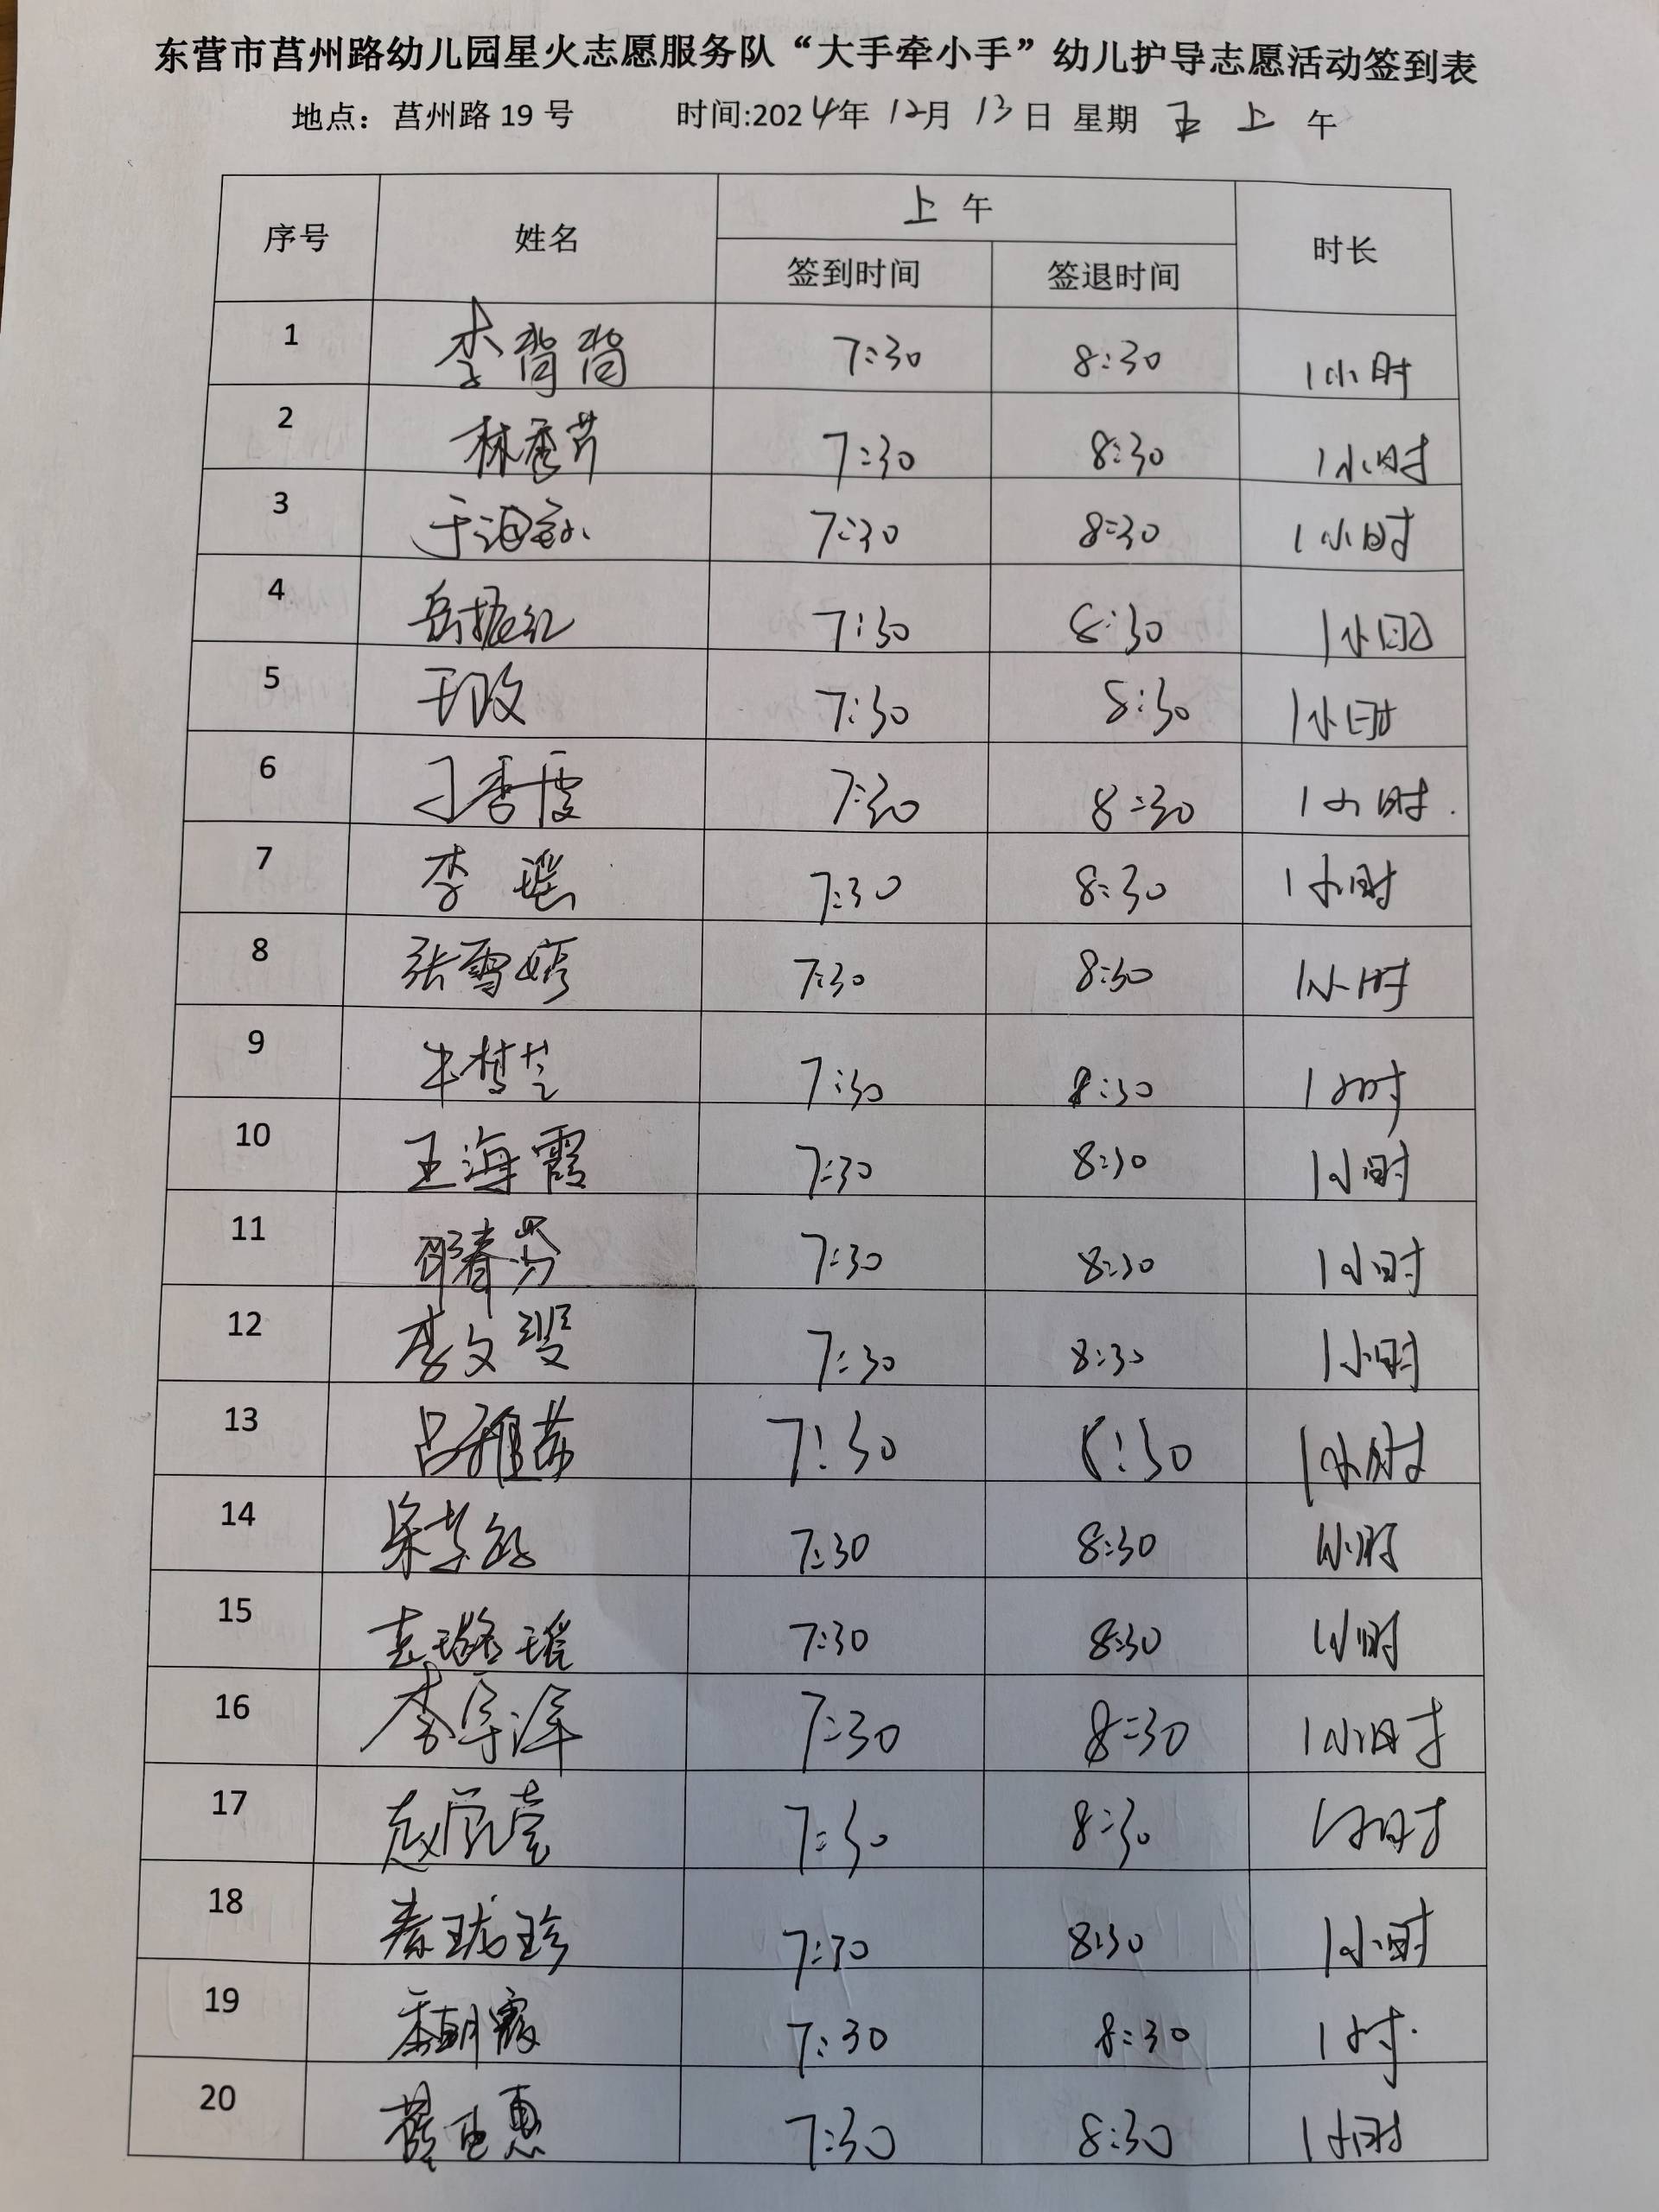 东营市莒州路幼儿园星火志愿服务队“大手牵小手”幼儿护导志愿活动签到表
地点：莒州路 19 号 时间:2024年 12月 13日 星期 五 上 午
序号 姓名 上 午 时长
签到时间 签退时间
1 李 7:30 8:30 1小时
2 林秀芹 7:30 8:30 1小时
3 于海 7:30 8:30 1小时
4 岳振红 7:30 8:30 1小时
5 7:30 8:30 1小时
6 刁秀霞 7:30 8:30 1小时.
7 李 瑶 7:30 8:30 1小时
8 张雪嫣 7:30 8:30 1小时
9 牛梦芝 7:30 8:30 1小时
10 王海霞 7:30 8:30 1小时
11 春芬 7:30 8:30 1小时
12 李文翠 7:30 8:30 1小时
13 吕雅茹 7:30 8:30 1小时
14 7:30 8:30 1小时
15 璐瑶 7:30 8:30 1小时
16 李宇泽 7:30 8:30 1小时
17 赵 7:30 8:30 1小时
18 秦珑珍 7:30 8:30 1小时
19 朝霞 7:30 8:30 1小时.
20 薛 惠 7:30 8:30 1小时